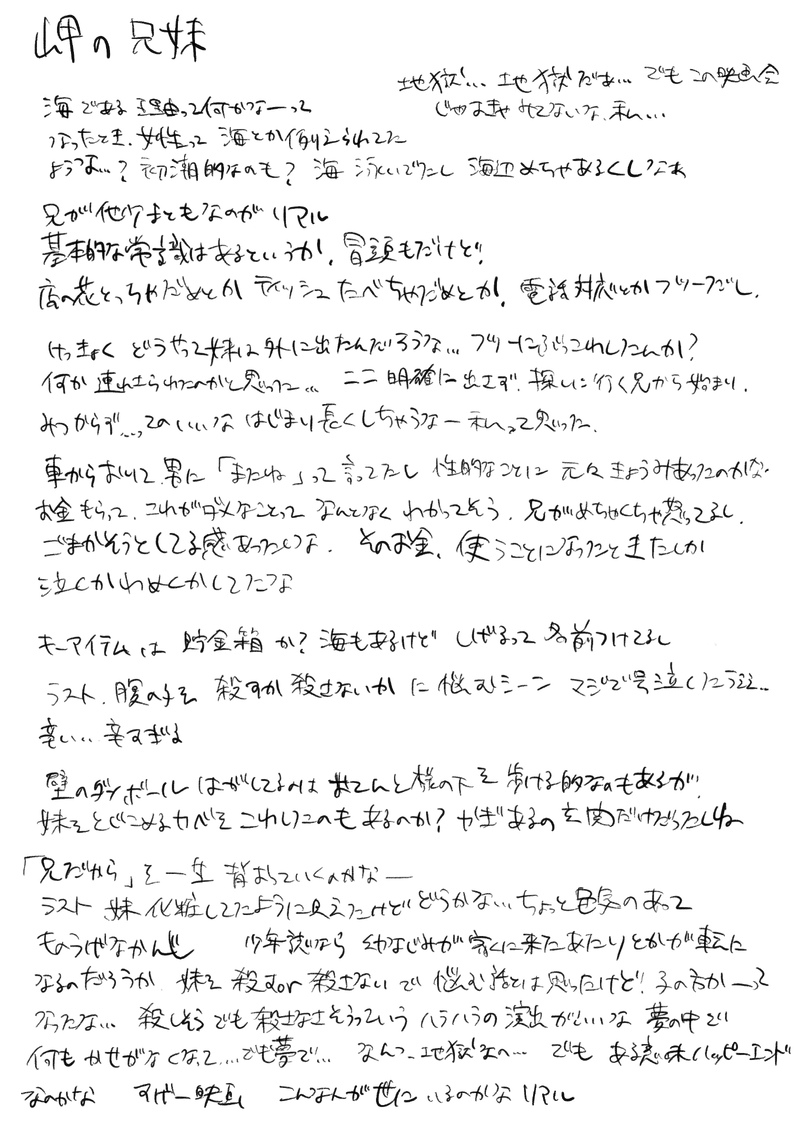 岬の兄妹
地獄… 地獄だぁ… でもこの映画会
じゃなきゃ みてないな、私…
海である理由って何かなーって
なったとき、女性って 海とか例えられてた
ような…？ 初潮的なのも？ 海 泳いでたし 海辺めちゃあるくしなぁ
兄が他ケまともなのが リアル
基本的な常識はあるというか、冒頭もだけど、
店の花とっちゃだめとか ティッシュ たべちゃだめとか、電話対応とかフツーだし、
けっきょく どうやって妹は外に出たんだろうな… フツーにぶっこわしたんか？
何か 連れさられたのかと思った… ここ明確に出さず、探しに行く兄から始まり、
みつからず…、ってのいいな はじまり長くしちゃうなー私って思った、
車からおりて、男に「またね」って言ってたし 性的なことに 元々きょうみあったのかな、
お金もらって、これがダメなことって なんとなく わかってそう、兄がめちゃくちゃ怒ってるし、
ごまかそうとしてる感あったしな、 そのお金、使うことになったときたしか
泣くかわめくかしてたな
キーアイテムは 貯金箱 か？ 海もあるけど しげるって 名前つけてるし
ラスト、腹の子を 殺すか殺さないか に悩むシーン マジで号泣しにうええ…
辛い… 辛すぎる
壁のダンボール はがしてるのは おてんと様の下を歩ける的なのもあるが、
妹をとじこめるカベを こわしたのもあるのか？ かぎあるの玄関だけだったしね
「兄だから」を一生 背おっていくのかなー
ラスト 妹 化粧してたように見えたけど どうかな… ちょっと色気のあって
ものうげなかんじ 少年誌なら 幼なじみが家に来たあたりとかが転に
なるのだろうか 妹を 殺すor殺さない で 悩む話とは思ったけど、子の方かーって
なったな… 殺しそう でも殺さなさそうっていう ハラハラの演出がいいな 夢の中で
何も かせがなくなって… でも夢で… なんつー地獄なんへ… でも ある意味ハッピーエンド
なのかな すげー映画 こんなんが世に いるのかな リアル